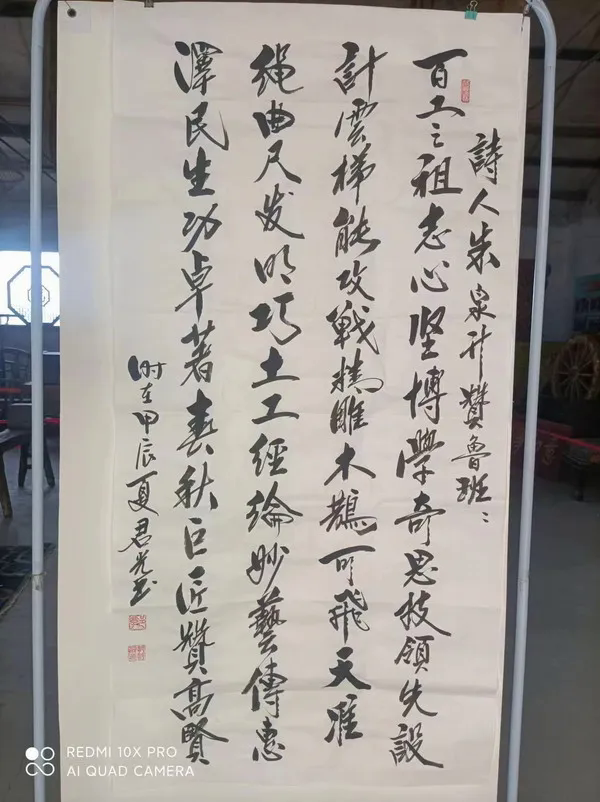 詩人朱泉升贊魯班：
百工之祖志心堅博學奇思技領先設
計雲梯能攻戰精雕木鵲可飛天准
繩曲尺发明巧土工經綸妙藝傳惠
澤民生功卓著春秋巨匠贊高賢
时在甲辰夏君光书
REDMI 10X PRO
AI QUAD CAMERA